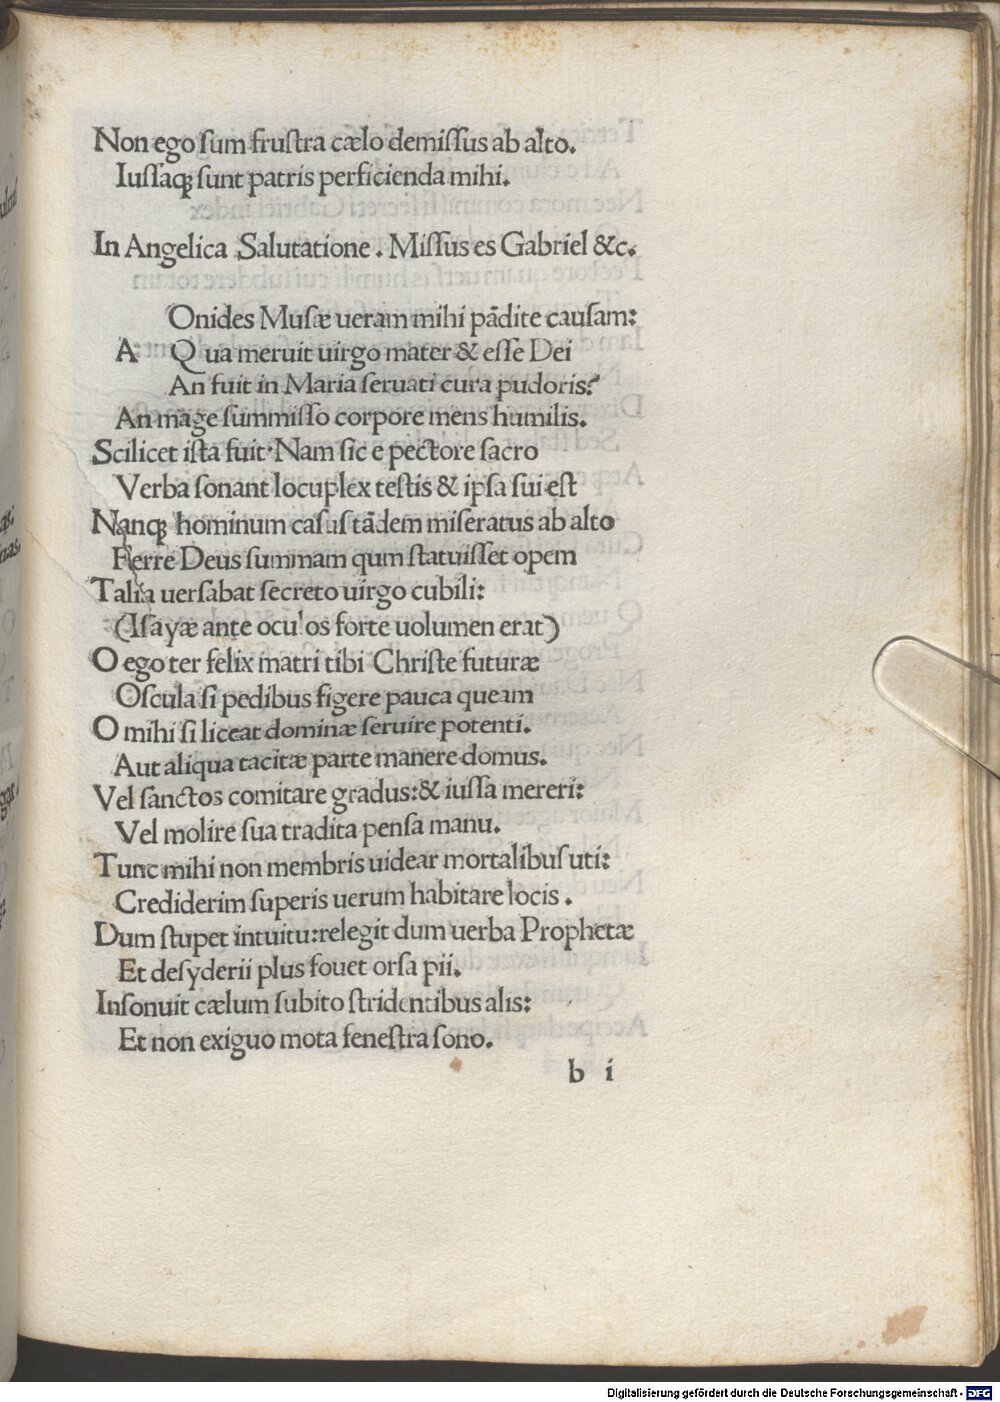 Non ego ſum fruſtra cælo demiſſus ab alto.
Iuſſaq; ſunt patris perficienda mihi.
In Angelica Salutatione . Miſſus es Gabriel &c.
Onides Muſæ ueram mihi pādite cauſam:
A Qua meruit uirgo mater & eſſe Dei
An fuit in Maria ſeruati cura pudoris?
An mage ſummiſſo corpore mens humilis.
Scilicet iſta fuit· Nam ſic e pectore ſacro
Verba ſonant locuplex teſtis & ipſa ſui eſt
Nanq; hominum caſus tādem miſeratus ab alto
Ferre Deus ſummam qum ſtatuiſſet opem
Talia uerſabat ſecreto uirgo cubili:
(Iſayæ ante oculos forte uolumen erat)
O ego ter felix matri tibi Chriſte futuræ
Oſcula ſi pedibus figere pauca queam
O mihi ſi liceat dominæ ſeruire potenti.
Aut aliqua tacitæ parte manere domus.
Vel ſanctos comitare gradus:& iuſſa mereri:
Vel molire ſua tradita penſa manu.
Tunc mihi non membris uidear mortalibuſ uti:
Crediderim ſuperis uerum habitare locis .
Dum ſtupet intuitu:relegit dum uerba Prophetæ
Et deſyderii plus fouet orſa pii.
Inſonuit cælum ſubito ſtridentibus alis:
Et non exiguo mota feneſtra ſono.
b i
Digitalisierung gefördert durch die Deutsche Forschungsgemeinschaft - DFG